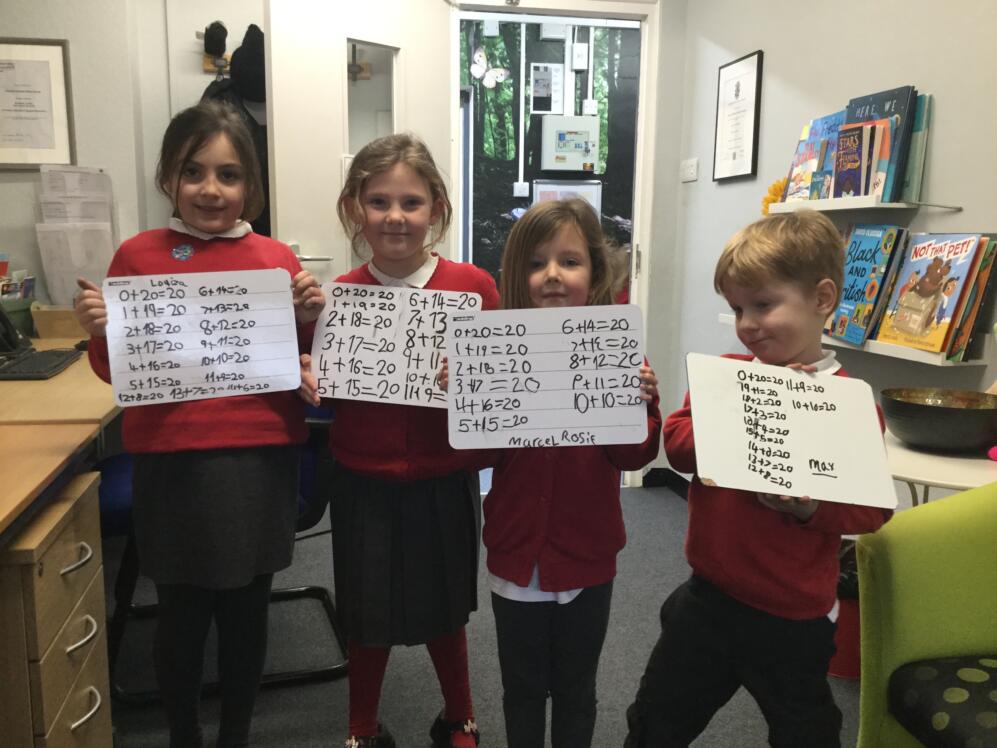 Logiza
0+20=20 6+14=20
1+19=20 7+13=20
2+18=20 8+12=20
3+17=20 9+11=20
4+16=20 10+10=20
5+15=20 11+9=20
12+8=20 13+7=20 14+6=20
0+20=20 6+14=20
1+19=20 7+13
2+18=20 8+12
3+17=20 9+11
4+16=20 10+10
5+15=20 11+9=20
0+20=20 6+14=20
1+19=20
2+18=20 8+12=20
3+17=20 9+11=20
4+16=20 10+10=20
5+15=20
Marcel Rosie
0+20=20 11+9=20
19+1=20 10+10=20
18+2=20
17+3=20
16+4=20
15+5=20
14+6=20
13+7=20
12+8=20
Max
HERE WE
STARS
BLACK
AND
British
NOT THAT PET!